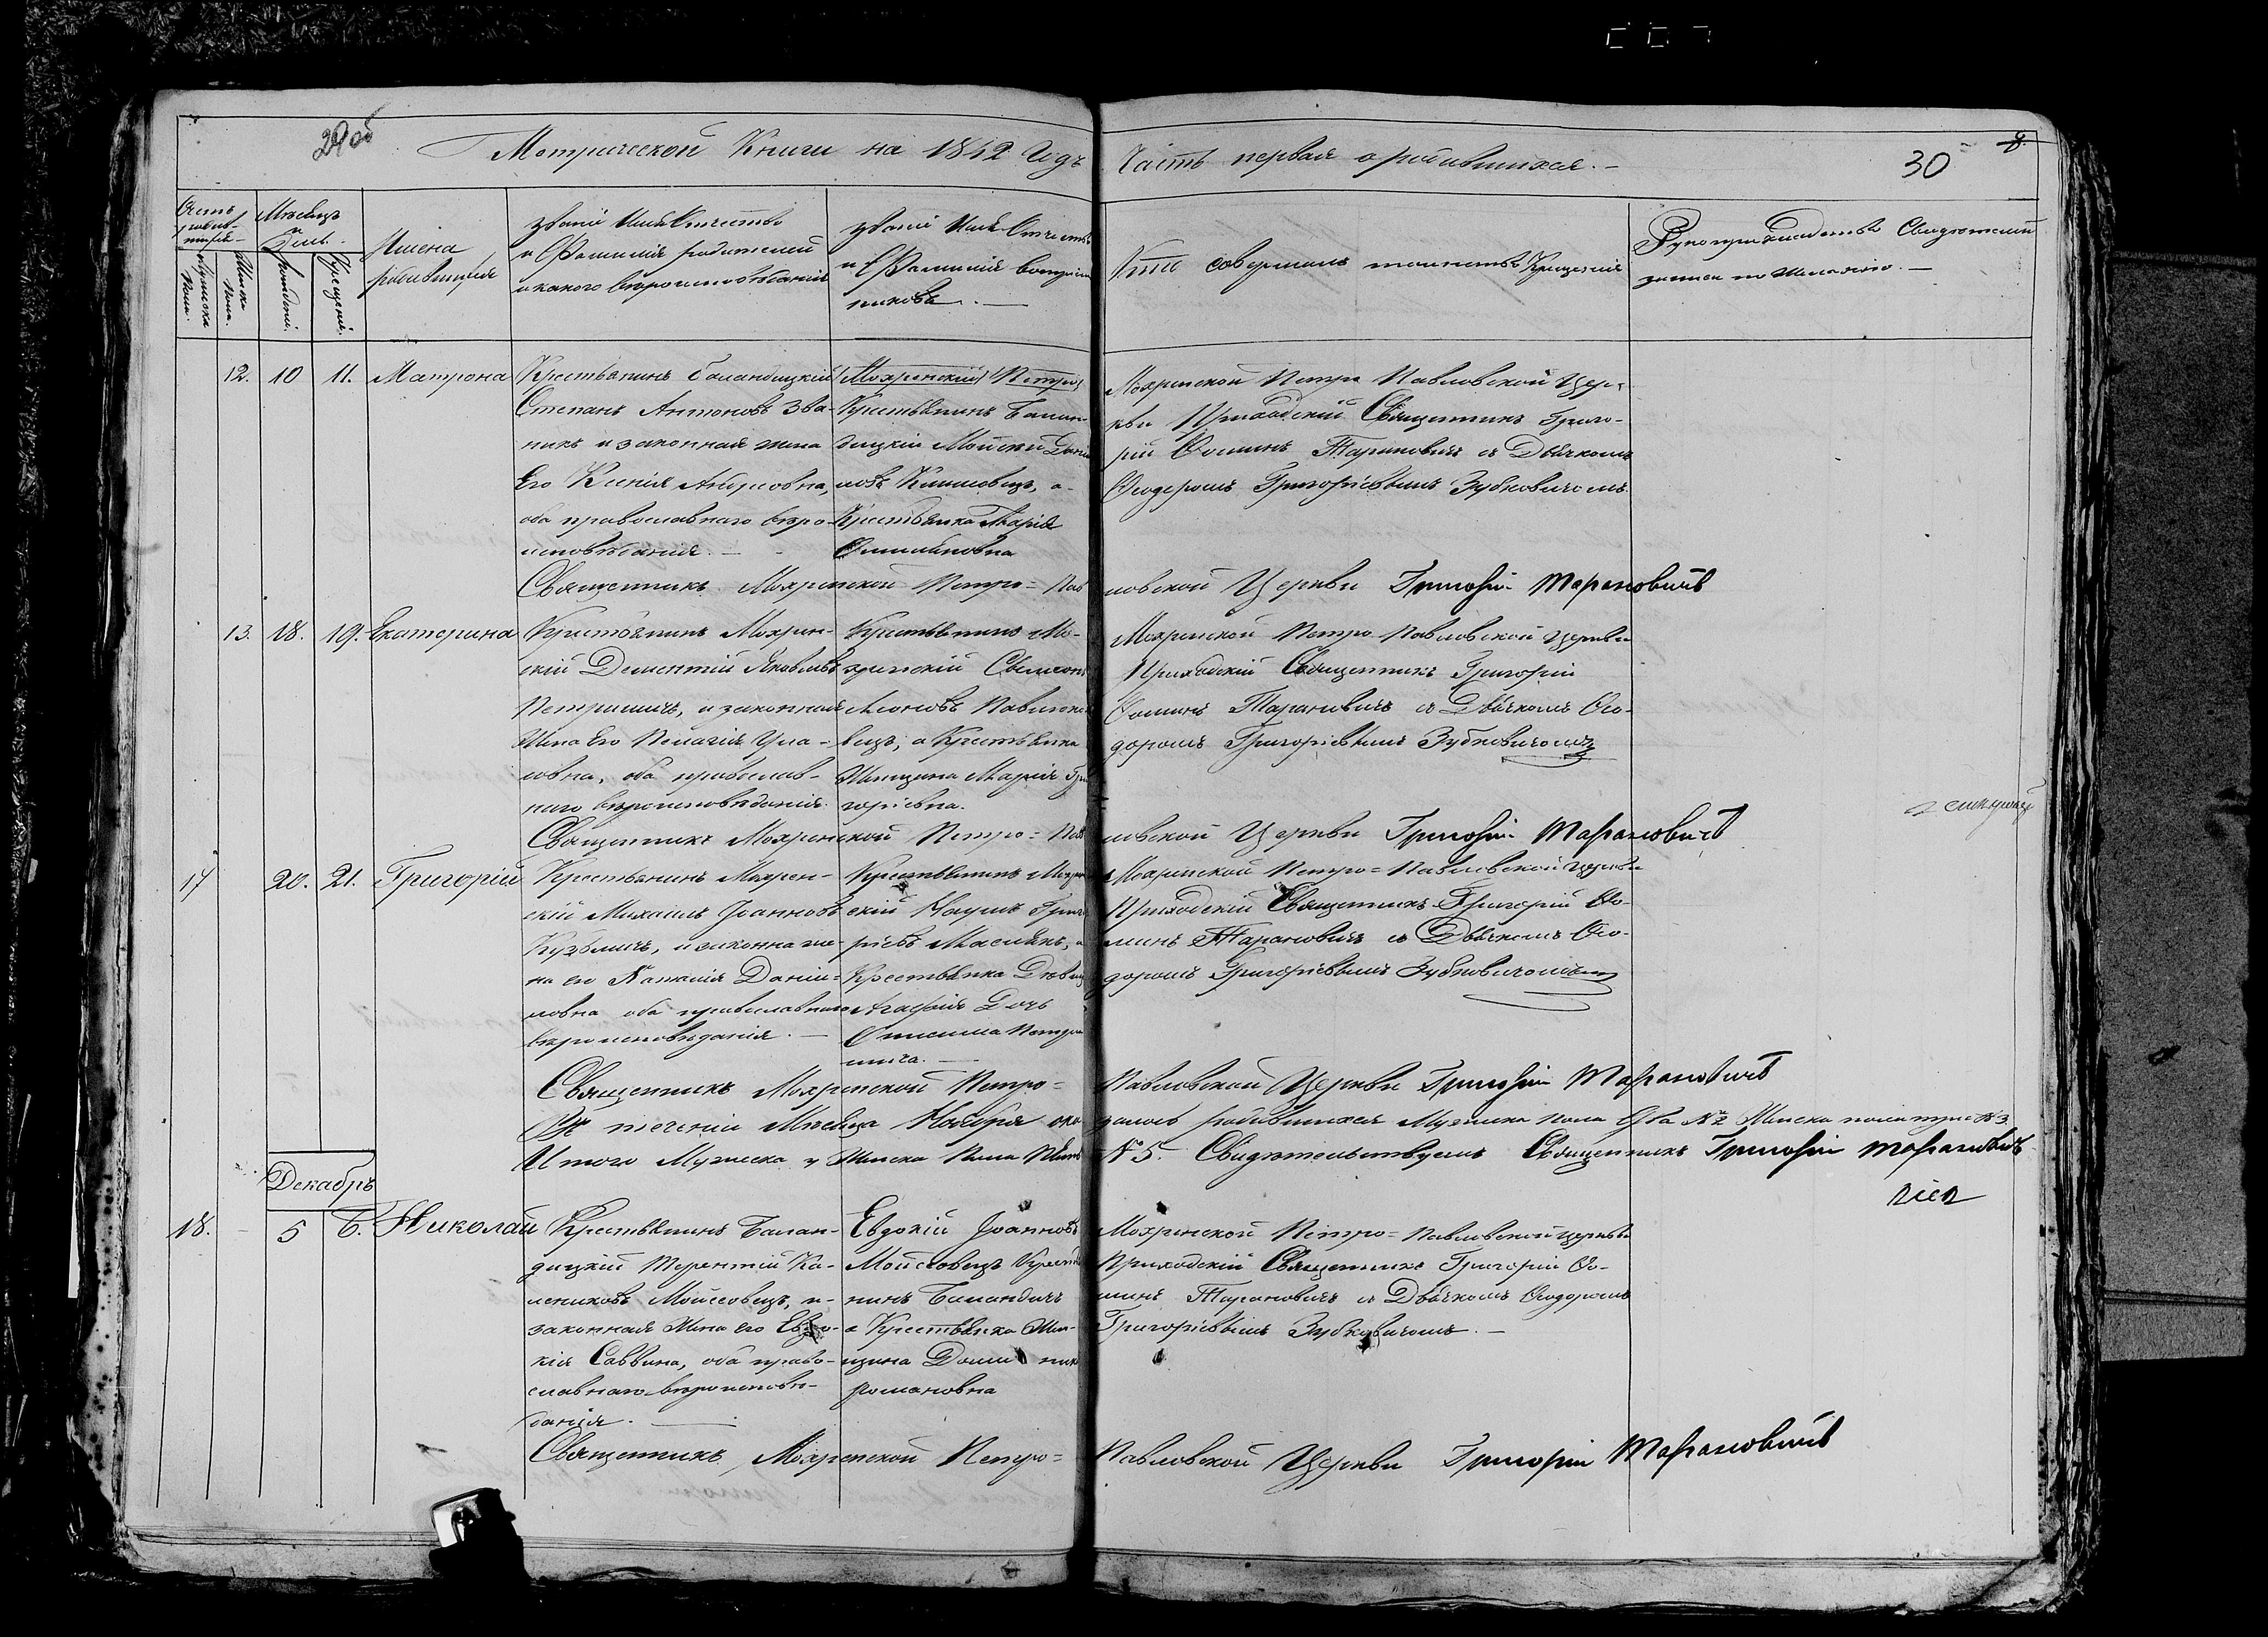 29об
Метрической Книги на 1842 Годъ Часть первая о родившихся. –
30
8.
Счетъ родив-шихся
Мѣсяцъ и День.
Мужеска пола.
Женска пола.
Рожденія.
Крещенія.
Имена родившихся
Званіе Имя Отчество
и Фамилія родителей
и какого вѣроисповѣданія
Званіе Имя Отчество
и Фамилія воспріем
никовъ. —
Кто совершалъ таинство Крещенія
Рукоприкладство Свидѣтелей
записи по желанію. —
12. 10 11. Матрона
Крестьянинъ Баландицкій
Степанъ Антоновъ Зва-
никъ и законная жена
Его Ксенія
оба православнаго вѣро-
исповѣданія. —
Мохренскій
Крестьянинъ Балан-
дицкій Моисей
Климовецъ, а
Крестьянка Марія
Мохренской Петро Павловской Цер-
кви Приходскій Священникъ Григо-
рій Ѳоминъ Тарановичъ съ Дьячкомъ
Ѳеодоромъ Григорьевымъ Зубковичемъ.
Священникъ Мохренской Петро = Пав
ловской Церкви Григорій Тарановичъ
13. 18. 19. Екатерина
Крестьянинъ Мохрен-
скій Дементій Яковлевъ
Петришичъ, и законная
Жена Его Пелагія Ула-
совна, оба православ-
наго вѣроисповѣданія.
Крестьянинъ Мо-
хренскій Симеонъ
Леоновъ
вецъ, а Крестьянка
Женщина Марія Гри
горіевна.
Мохренской Петро-Павловской Церкви
Приходскій Священникъ Григорій
Ѳоминъ Тарановичъ съ Дьячкомъ Ѳео-
доромъ Григорьевымъ Зубковичемъ
Священникъ Мохренской Петро = Пав
ловской Церкви Григорій Тарановичъ
17 20. 21. Григорій
Крестьянинъ Мохрен-
скій Михаилъ Іоанновъ
Кузьмичъ, и законна же-
на его Наталія Даніи-
ловна оба православнаго
вѣроисповѣданія. —
Крестьянинъ Мохрен
скій Наумъ Григо
рьевъ Масивкъ, а
Крестьянка Дѣвица
Агафія Дочь
Онисима Петри
шича. —
Мохренской Петро = Павловской Церкви
Приходскій Священникъ Григорій Ѳо-
минъ Тарановичъ съ Дьячкомъ Ѳео-
доромъ Григорьевымъ Зубковичемъ
Священникъ Мохренской Петро =
Павловской Церкви Григорій Тарановичъ
Въ теченіи Мѣсяца Ноября ока
залось родившихся Мужеска пола Два № 2 Женска пола три № 3.
Итого Мужеска и Женска Пола Пять
№ 5. Свидѣтельствуемъ Священникъ Григорій Тарановичъ
Декабрь
18. – 5 6. Николай
Крестьянинъ Балан-
дицкій Терентій Ка-
лениковъ Моисеовецъ, и
законная Жена его Евдо-
кія Саввина, оба право-
славнаго вѣроисповѣ-
данія. —
Евдокій Іоанновъ
Моисеовецъ Крестья
нинъ Баландичъ
а Крестьянка Жен-
щина
Романовна
Мохренской Петро = Павловской Церкви
Приходскій Священникъ Григорій Ѳо-
минъ Тарановичъ съ Дьячкомъ Ѳеодоромъ
Григорьевымъ Зубковичемъ. –
Священникъ Мохренской Петро =
Павловской Церкви Григорій Тарановичъ